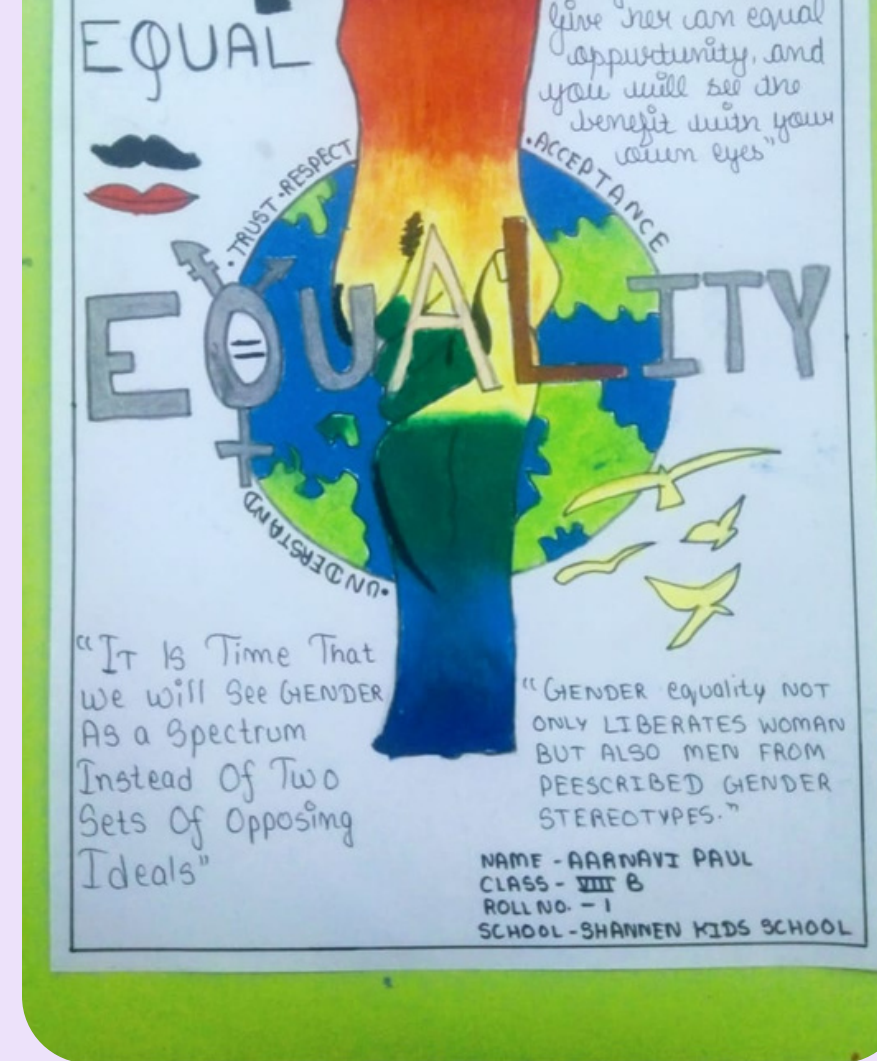 EQUAL
give her an equal
oppurtunity, and
you will see the
benefit with your
own eyes"
.TRUST.RESPECT
.ACCEPTANCE
EQUALITY
.UNDERSTAND
"It Is Time That
we will See GENDER
As a Spectrum
Instead Of Two
Sets Of Opposing
Ideals"
"GENDER equality NOT
ONLY LIBERATES WOMAN
BUT ALSO MEN FROM
PEESCRIBED GENDER
STEREOTYPES."
NAME - AARNAVI PAUL
CLASS - VIII B
ROLL NO. - 1
SCHOOL - SHANNEN KIDS SCHOOL